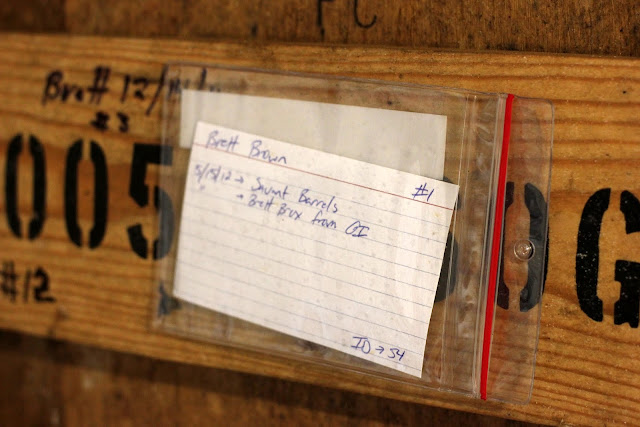 Brett 12/
#3
005
OG
#12
Brett Brown
#1
5/15/12 → Savant Barrels
" → Brett Brux from GI
ID → 54